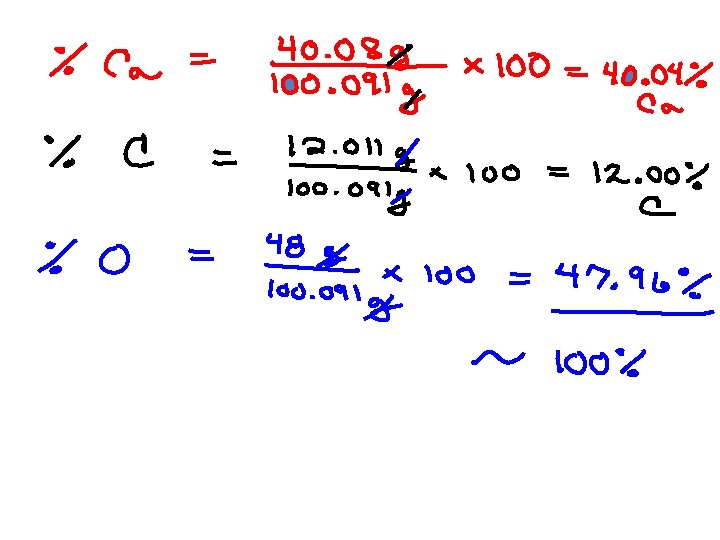 % Ca = 40.08g / 100.091g × 100 = 40.04% Ca
% C = 12.011g / 100.091g × 100 = 12.00% C
% O = 48g / 100.091g × 100 = 47.96%
~ 100%